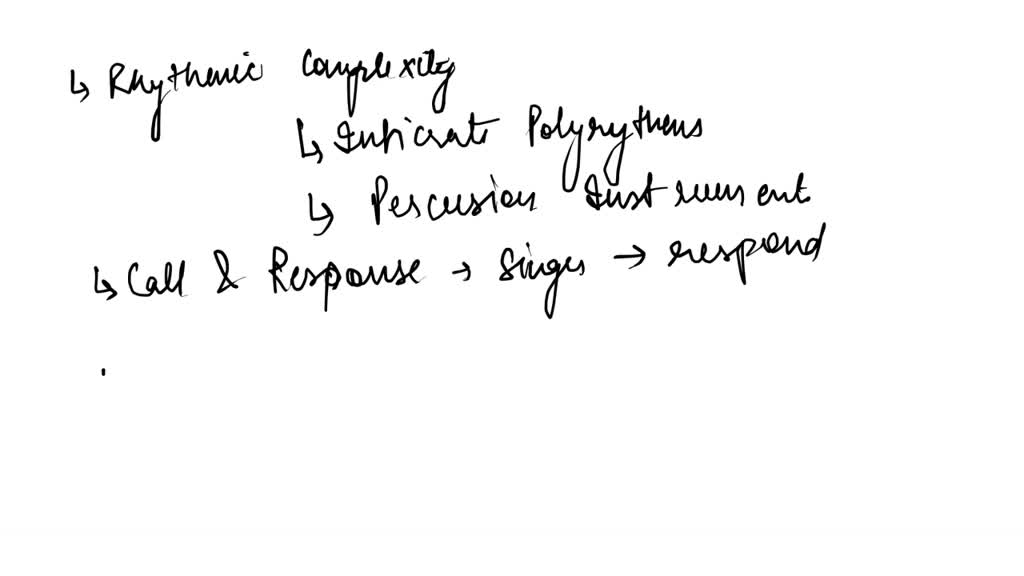 ↳ Rhythmic Complexity
↳ Intricate Polyrythms
↳ Percusion Instrument
↳ Call & Response → Singer → respond